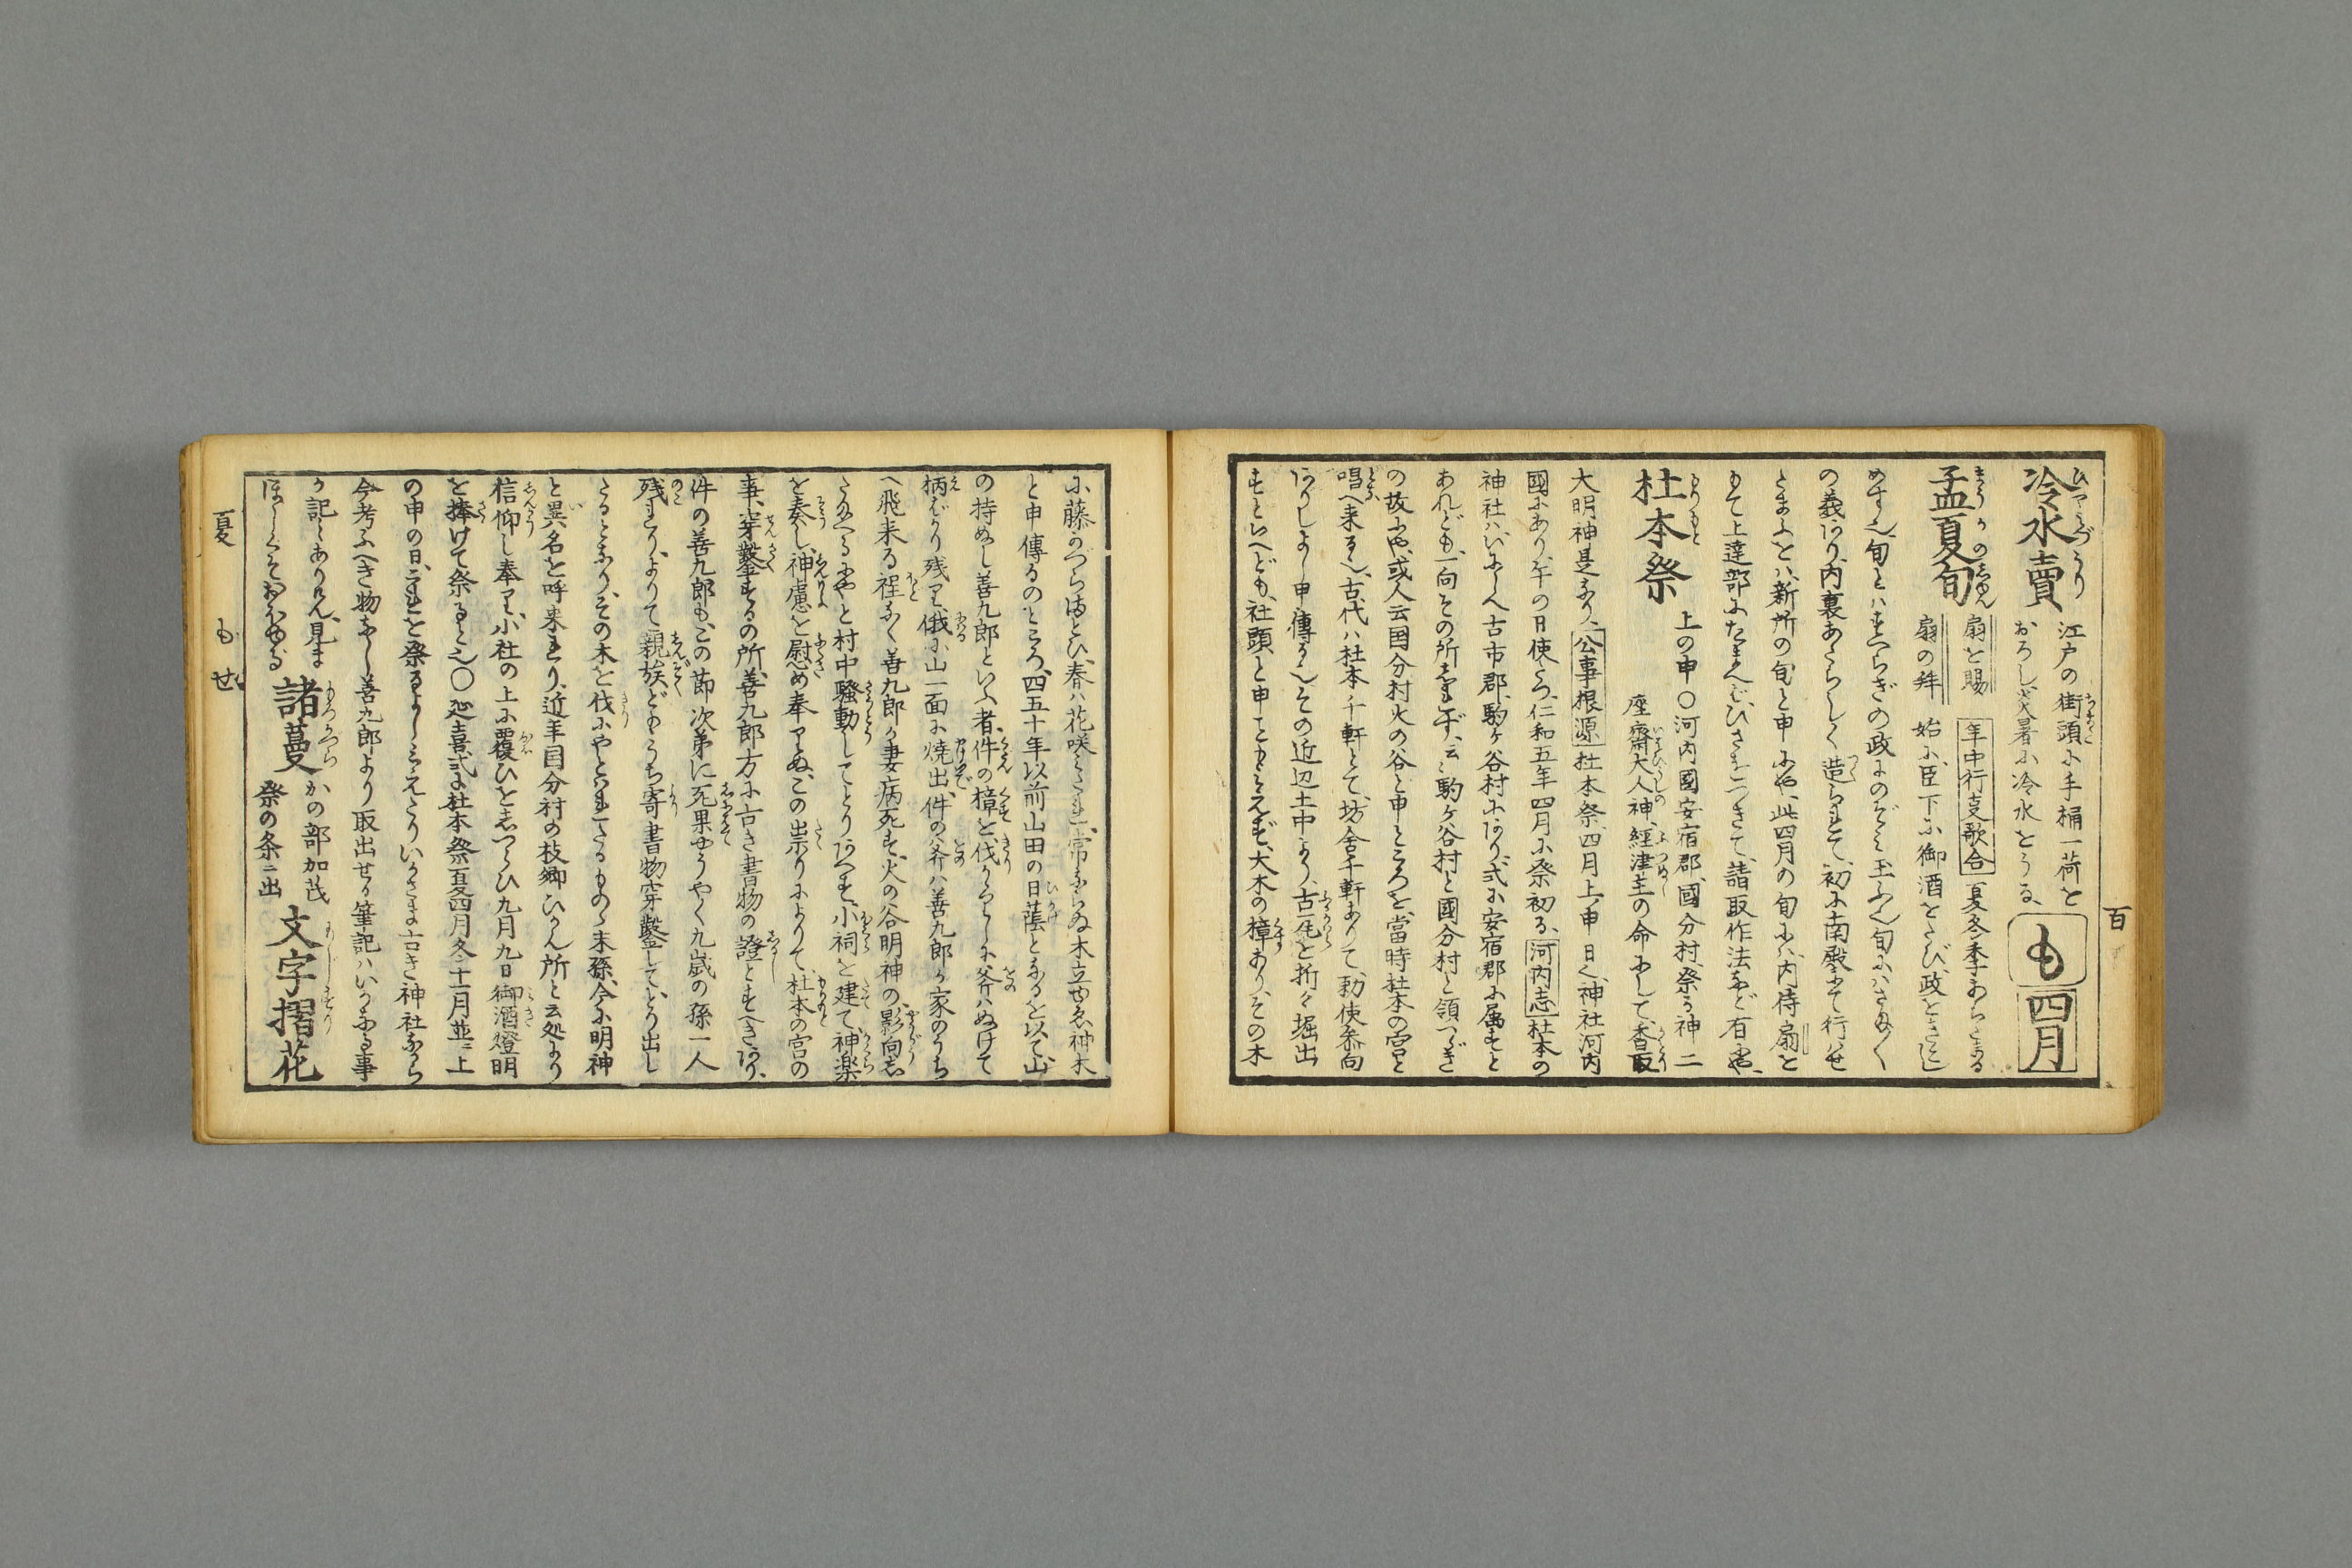 冷水賣
江戸の街頭に手桶一荷を
おろし炎暑に冷水をうる
も
四月
孟夏旬
扇を賜
扇の拜
年中行支歌合 夏冬季あらたまる
始に臣下に御酒をたび政をきこし
めす也旬とハすへらぎの政にのぞミ玉ふ也旬にハさま〴〵
の義あり内裏あたらしく造られて初に南殿にて行ハせ
たまふをハ新所の旬と申にや此四月の旬にハ内侍扇を
もて上達部にたまへバひざまつきて請取作法など有にや
杜本祭
上の申〇河内國安宿郡國分村祭る神二
座齋大人神経津主の命にして香取
大明神是なり公事根源杜本祭四月上ノ申ノ日也神社河内
國にあり午の日使たつ仁和五年四月に祭初る河内志杜本の
神社ハ
古市郡駒ケ谷村にあり式に安宿郡に属すと
あれども一向その所しれず云云駒ケ谷村と國分村と領つゞき
の故にや或人云国分村火の谷と申ところを當時杜本の宮と
唱へ来る也古代ハ杜本千軒とて坊舎千軒ありて勅使参向
ありしよし申傳る也その近辺土中より古瓦を折々堀出
すといへども社頭と申こともミえず大木の樟ありその木
に藤かづらまとひ春ハ花咲ミだれ常ならぬ木立ゆゑ神木
と申傳るのところ四五十年以前山田の日蔭となるを以て山
の持ぬし善九郎といふ者件の樟を伐かゝりしに斧ハぬけて
柄ばかり残り俄に山一面に焼出件の斧ハ善九郎が家のうち
へ飛来る程なく善九郎が妻病死す火の谷明神の影向し
たまへるにやと村中騒動してとりあへず小祠を建て神楽
を奏し神慮を慰め奉りぬこの祟りによりて杜本の宮の
事穿鑿するの所善九郎方に古き書物の證とすべきあり
件の善九郎もこの節次第に死果やうやく九歳の孫一人
残れりよりて親族どもうち寄書物穿鑿してとり出し
たるとなりその木を伐にやとハれたるものゝ末孫今に明神
と異名を呼来れり近年国分村の枝郷ひかん所と云処より
信仰し奉り小社の上に覆ひをしつらひ九月九日御酒燈明
を捧けて祭ると也〇延喜式に杜本祭夏四月冬十一月並ニ上
の申の日これを祭るよしミえたりいかさま古き神社ならん
今考ふへき物なし善九郎より取出せる筆記ハいかなる事
か記しありけん見ま
ほしくこそおほゆる
諸蔓
かの部加茂
祭の条ニ出
文字摺花
百
夏
も
せ